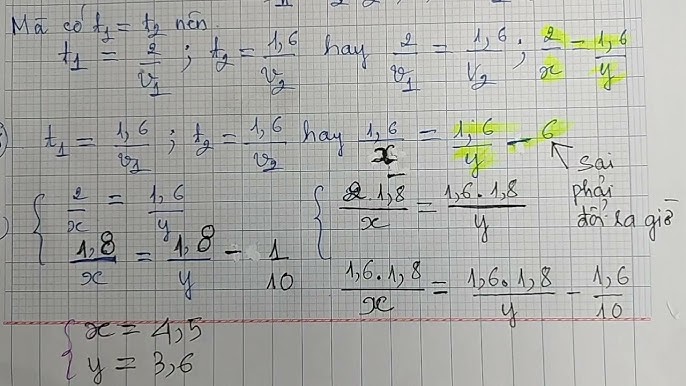 Mà có t₁ = t₂ nên.
t₁ = 2/v₁ ; t₂ = 1,6/v₂ hay 2/v₁ = 1,6/v₂ ; 2/x = 1,6/y
t₁ = 1,6/v₁ ; t₂ = 1,6/v₂ hay 1,6/x = 1,6/y - 6
sai
phải
đổi ra giờ
{ 2/x = 1,6/y
1,8/x = 1,8/y - 1/10
{ 2.1,8/x = 1,6.1,8/y
1,6.1,8/x = 1,6.1,8/y - 1,6/10
{ x = 4,5
y = 3,6